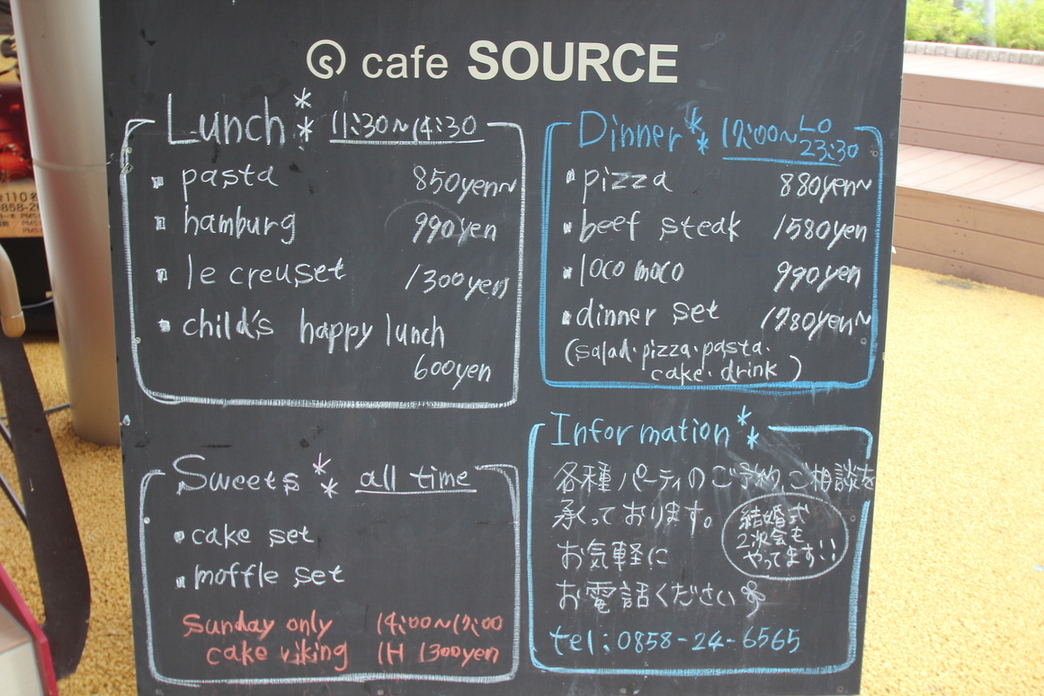 cafe SOURCE
Lunch ** 11:30~14:30
pasta 850yen~
hamburg 990yen
le creuset 1300yen
child's happy lunch
600yen
Dinner ** 17:00~LO 23:30
pizza 880yen~
beef steak 1580yen
loco moco 990yen
dinner set 1780yen~
(salad・pizza・pasta・
cake・drink)
Sweets ** all time
cake set
moffle set
Sunday only 14:00~17:00
cake viking 1H 1300yen
Information **
各種パーティのご予約、ご相談を
承っております。
お気軽に
お電話ください
結婚式
2次会も
やってます!!
tel:0858-24-6565